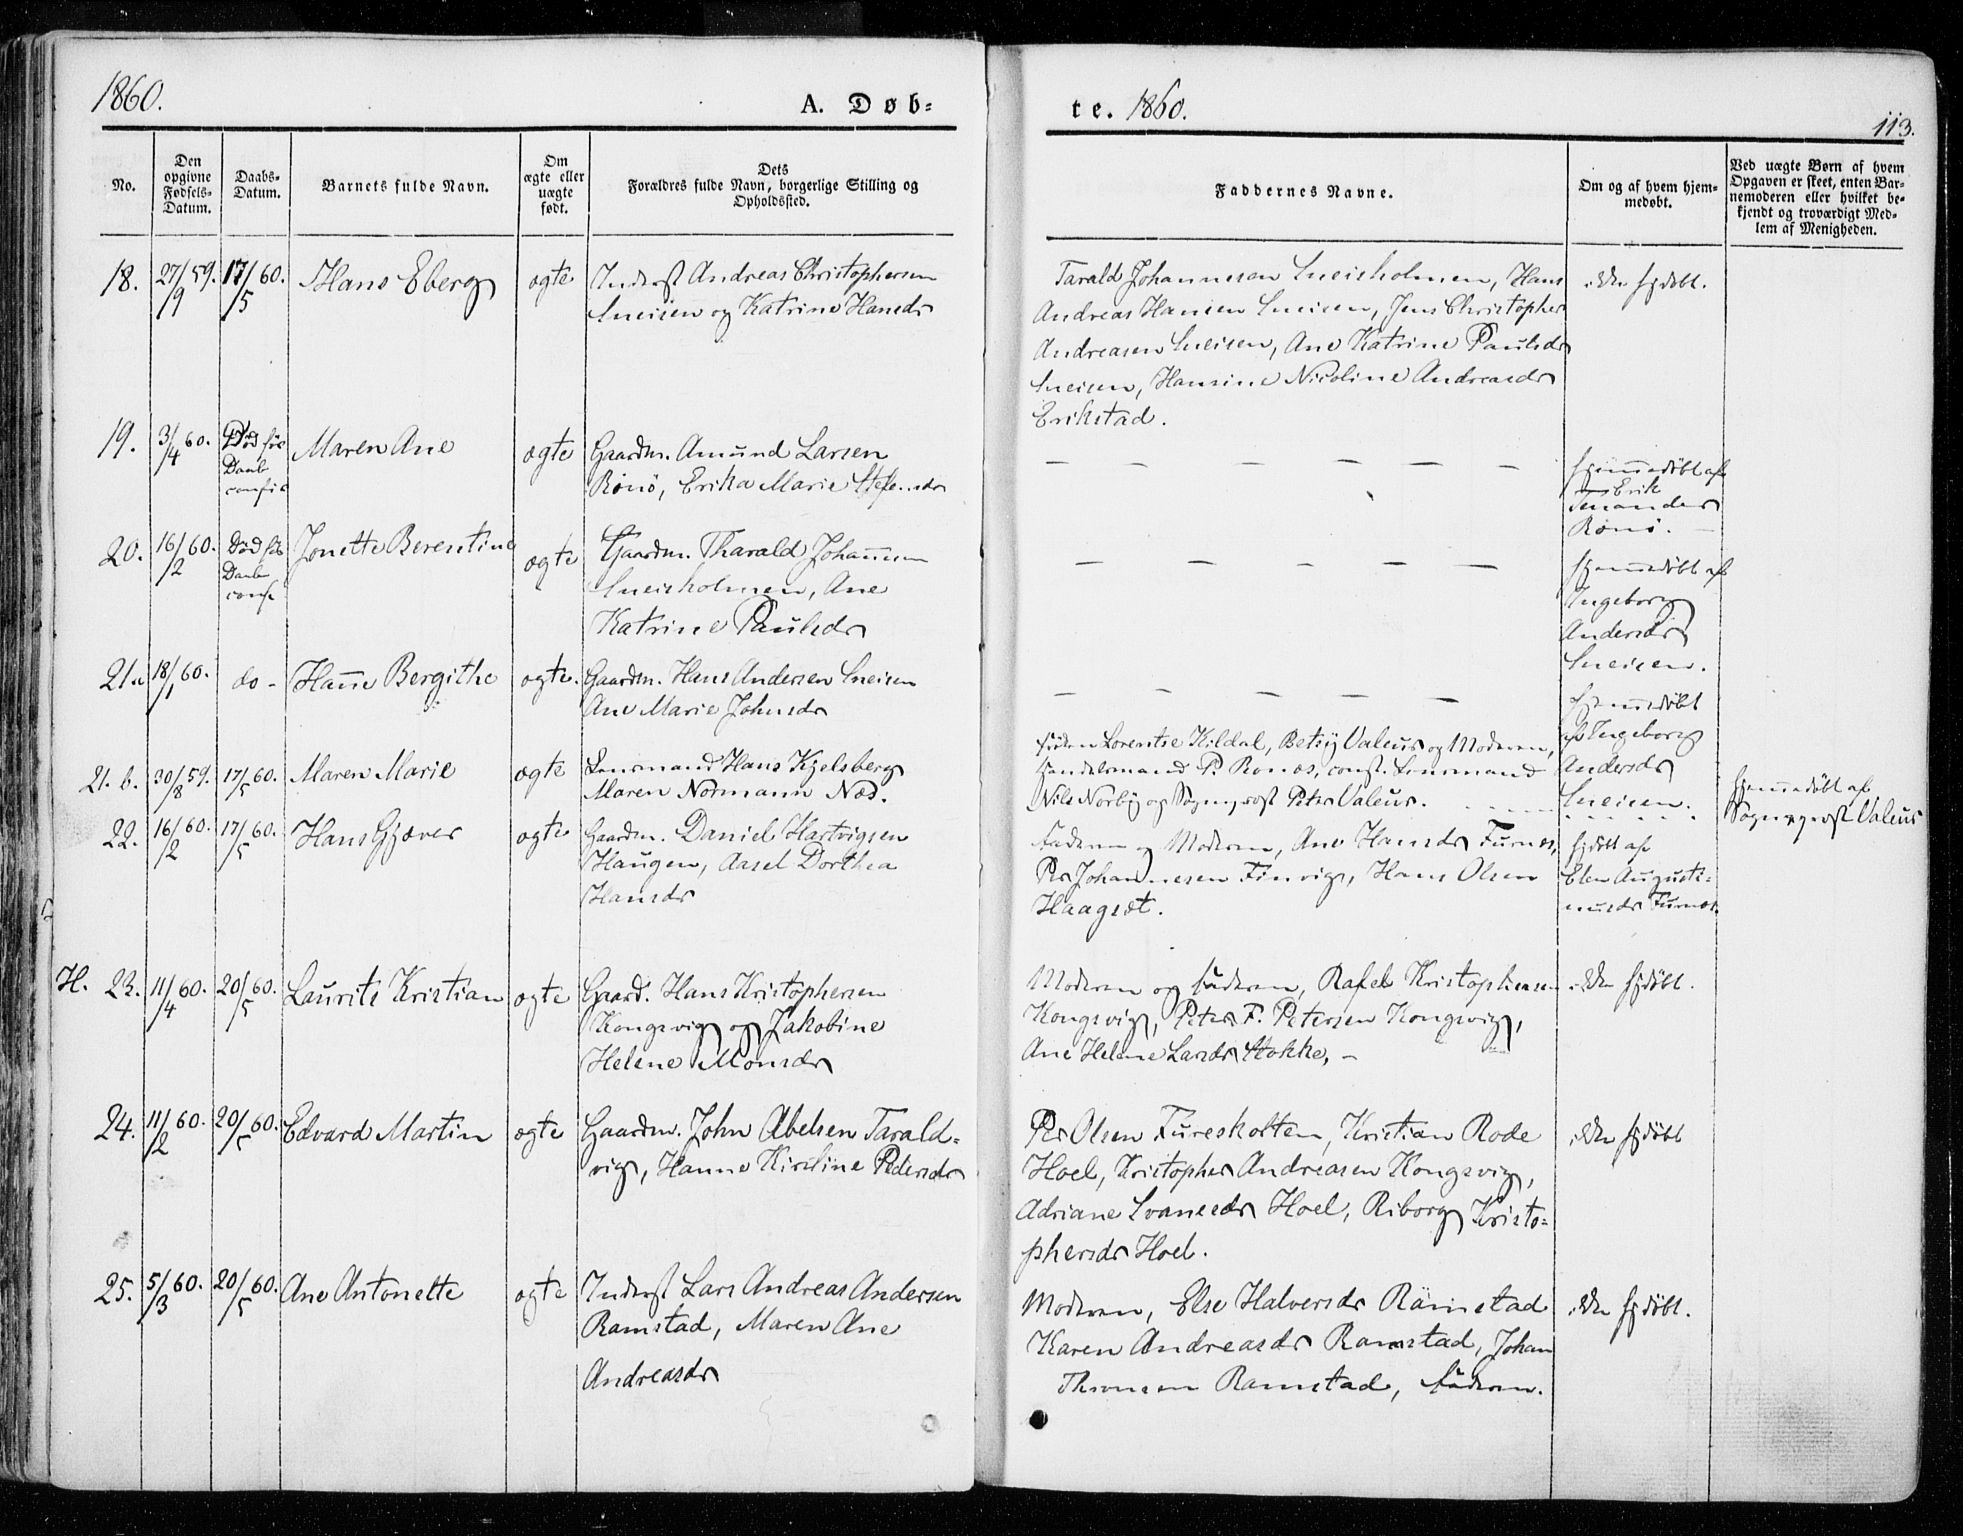 1860.
A. Døb=
No.
Den opgivne Fødsels-Datum.
Daabs-Datum.
Barnets fulde Navn.
Om ægte eller uægte født.
Dets
Forældres fulde Navn, borgerlige Stilling og
Opholdssted.
18. 27/9 59. 17/5 60. Hans Eberg ægte Inderst Andreas Christophersen
Sneisen og Katrine Hansdr
19. 3/4 60. Død før Daab Maren Ane ægte Gaardm. Amund Larsen
Rønø, Erika Marie
20. 16/2 60. Død før Daab conf. Jonette Berentine ægte Gaardm. Tharald Johannesen
Sneisholmen, Ane
Katrine Paulsdr
21.a 18/1 60. do - Hanne Bergithe ægte. Gaardm. Hans Andersen Sneisen
Ane Marie Johnsdr
21. b. 30/8 59. 17/5 60. Maren Marie ægte Lensmand Hans Kjelsberg
Maren Normann Næs.
22. 16/2 60. 17/5 60. Hans Gjæver ægte Gaardm. Daniel Hartvigsen
Haugen, Aasel Dorthea
Hansdr
H. 23. 11/4 60. 20/5 60. Laurits Kristian ægte Gaard. Hans Kristophersen
Kongsvig og Jakobine
Helene Monsdr
24. 11/2 60. 20/5 60. Edvard Martin ægte Gaardm. John Abelsen Tarald=
vig, Hanne Kirstine Pedersdr
25. 5/3 60. 20/5 60. Ane Antonette ægte Inderst Lars Andreas Andersen
Ramstad, Maren Ane
Andreasdr
te. 1860.
113.
Faddernes Navne.
Om og af hvem hjem-
medøbt.
Ved uægte Børn af hvem
Opgaven er skeet, enten Bar-
nemoderen eller hvilket be-
kjendt og troværdigt Med-
lem af Menigheden.
Tarald Johannesen Sneisholmen, Hans ikke hjdøbt.
Andreas Hansen Sneisen, Jens Christopher
Andreasen Sneisen, Ane Katrine Paulsdr
Sneisen, Hansine Nicoline Andreasdr
Erikstad.
— — — — — — hjemmedøbt af
Erik
Rønø. —
— — — — — hjemmedøbt af
Ingeborg
Andersdr
Sneisen.
— — — — — hjemmedøbt
af Ingeborg
Andersdr
Sneisen.
Lorentse Kildal, Betsy Valeur og Moderen,
Handelsmand P. Rønøs, const. Lensmand
Nils Norby og Sognepræst Peter Valeur.
hjemmedøbt af
Sognepræst Valeur
Faderen og Moderen, Ane Hansdr Furnes, hjdøbt af
Per Johannesen Finvig, Hans Olsen Elen Augusti=
Haagsæt. nusdr Furnes.
Moderen og Faderen, Rafel Kristophersen ikke hjdøbt.
Kongsvig, Peter F. Petersen Kongsvig,
Ane Helene Larsdr Stokke, —
Per Olsen Fureskolten, Kristian Rode ikke hjdøbt
Hoel, Kristopher Andreasen Kongsvig,
Adriane Svanesdr Hoel, Riborg Kristo=
phersdr Hoel.
Moderen, Else Halversdr Ramstad ikke hjdøbt.
Karen Andreasdr Ramstad, Johan
Thomsen Ramstad, Faderen.